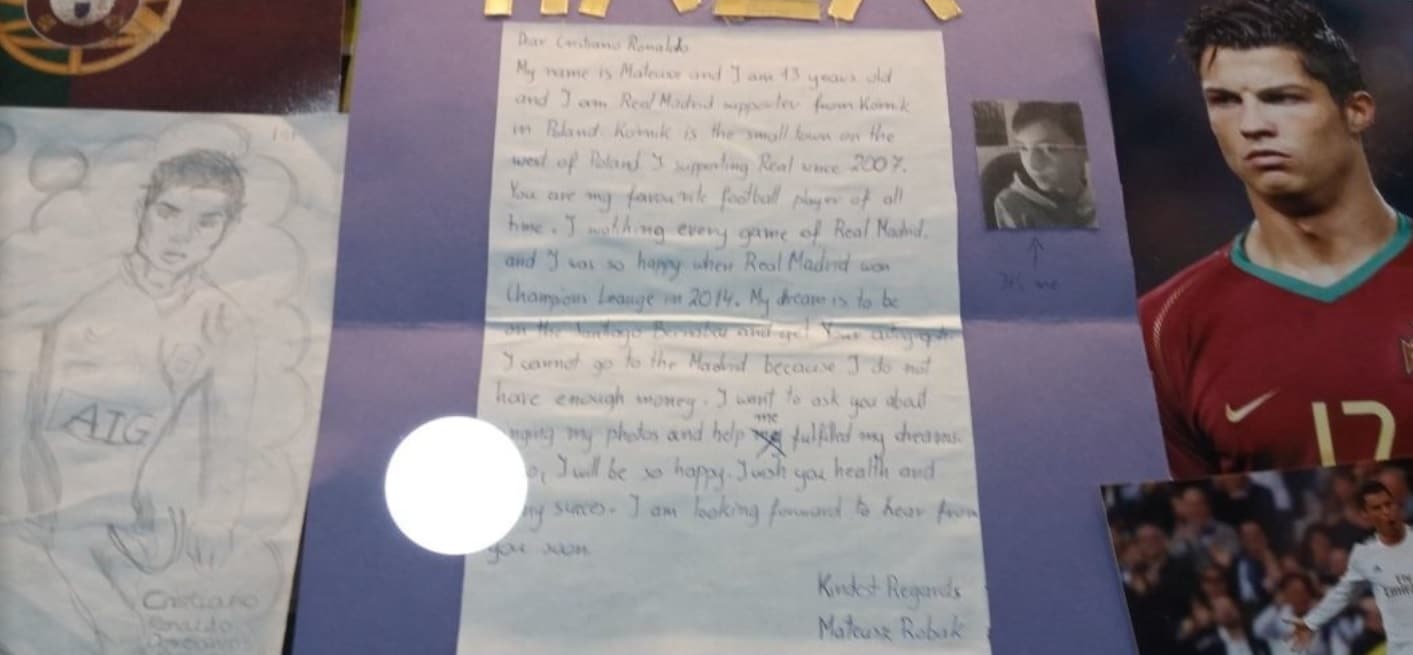 Dear Cristiano Ronaldo
My name is Mateusz and I am 13 years old
and I am Real Madrid supporter from Kórnik
in Poland. Kórnik is the small town on the
west of Poland I supporting Real since 2007.
You are my favourite football player of all
time. I watching every game of Real Madrid.
and I was so happy when Real Madrid won
Champions Leauge in 2014. My dream is to be
on the Santiago Bernabeu and get Your
I cannot go to the Madrid because I do not
have enough money. I want to ask you about
my photos and help me fulfilled my dreams.
I will be so happy. I wish you health and
succes. I am looking forward to hear from
you soon
Kindest Regards
Mateusz Robak
It's me
AIG
Cristiano
Ronaldo
17